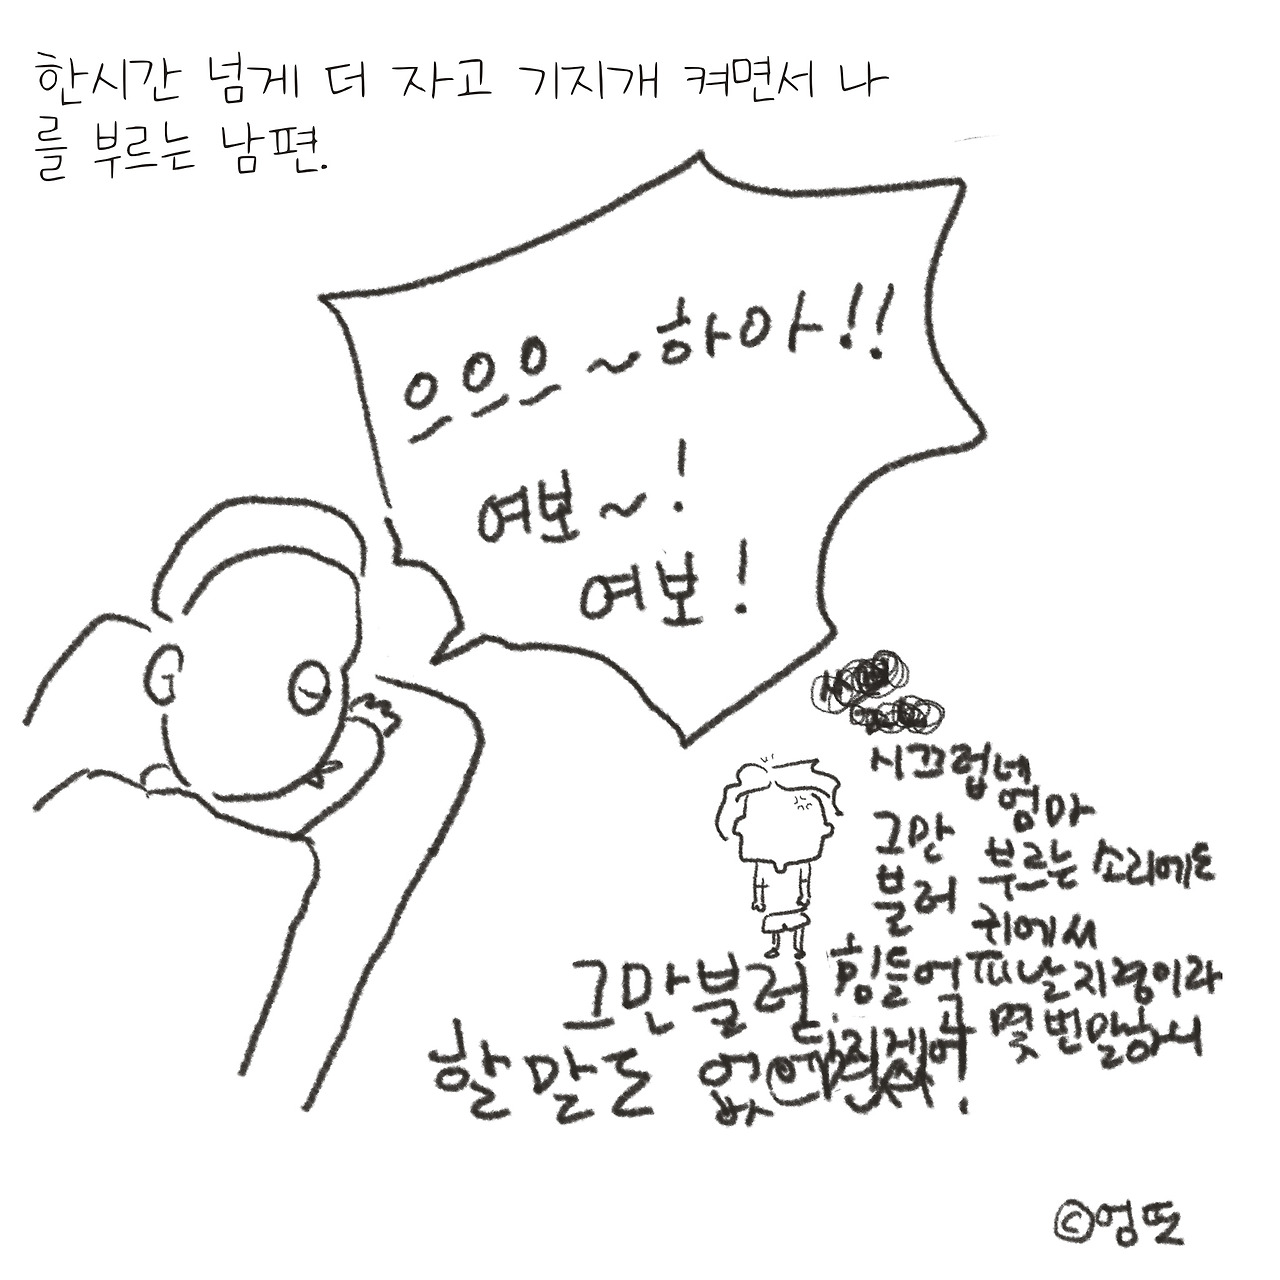 한시간 넘게 더 자고 기지개 켜면서 나
를 부르는 남편.
으으으~하아!!
여보~!
여보!
시끄럽네
그만
불러
엄마
부르는 소리에도
귀에서
피날지경이라
고 몇번말하니
힘들어
그만불러
할말도 없
ⓒ엉뚠